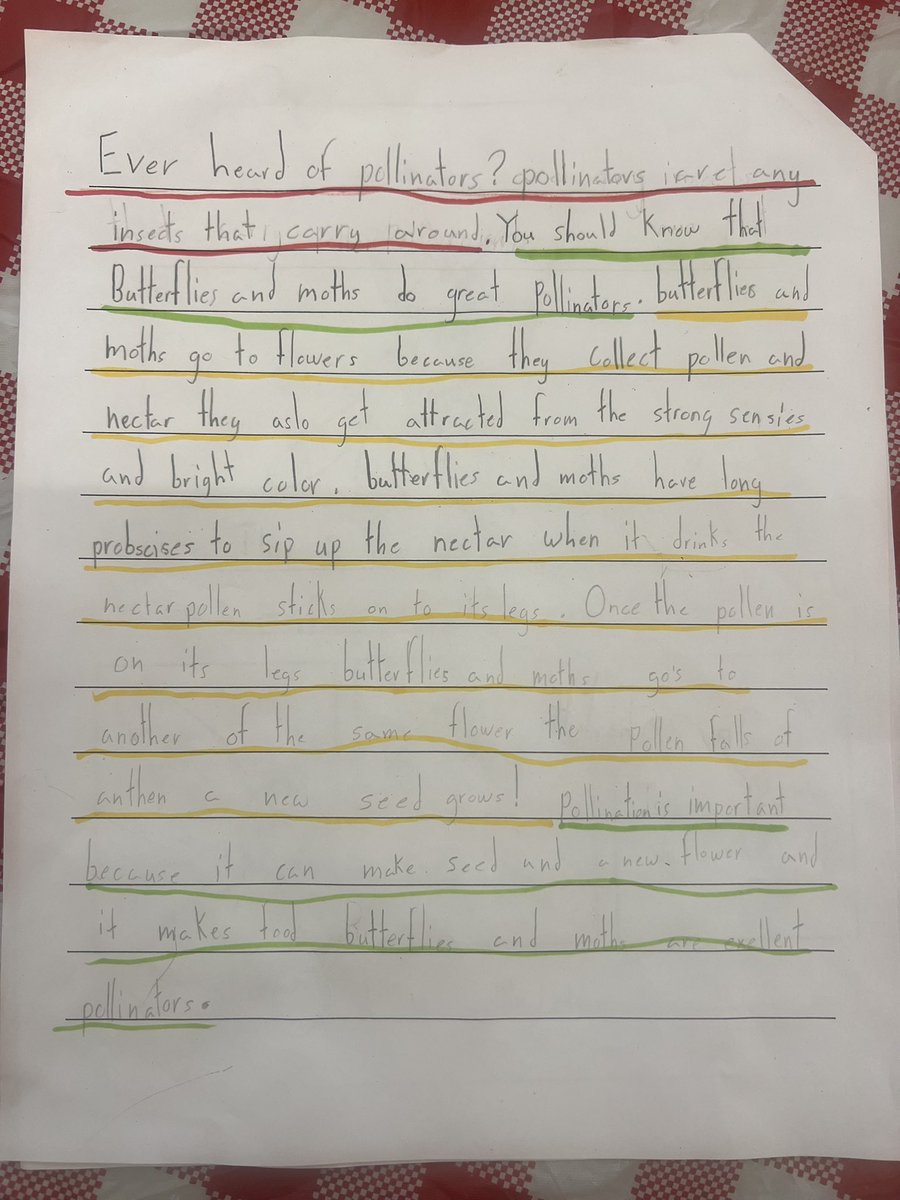 Ever heard of pollinators? pollinators are any
insects that carry around. You should know that
Butterflies and moths do great Pollinators. butterflies and
moths go to flowers because they collect pollen and
nectar they aslo get attracted from the strong sensies
and bright color. butterflies and moths have long
probscises to sip up the nectar when it drinks the
nectar pollen sticks on to its legs. Once the pollen is
on its legs butterflies and moths go's to
another of the same flower the pollen falls of
anthen a new seed grows! Pollination is important
because it can make. seed and a new. flower and
it makes food butterflies and moths are exellent
pollinators.